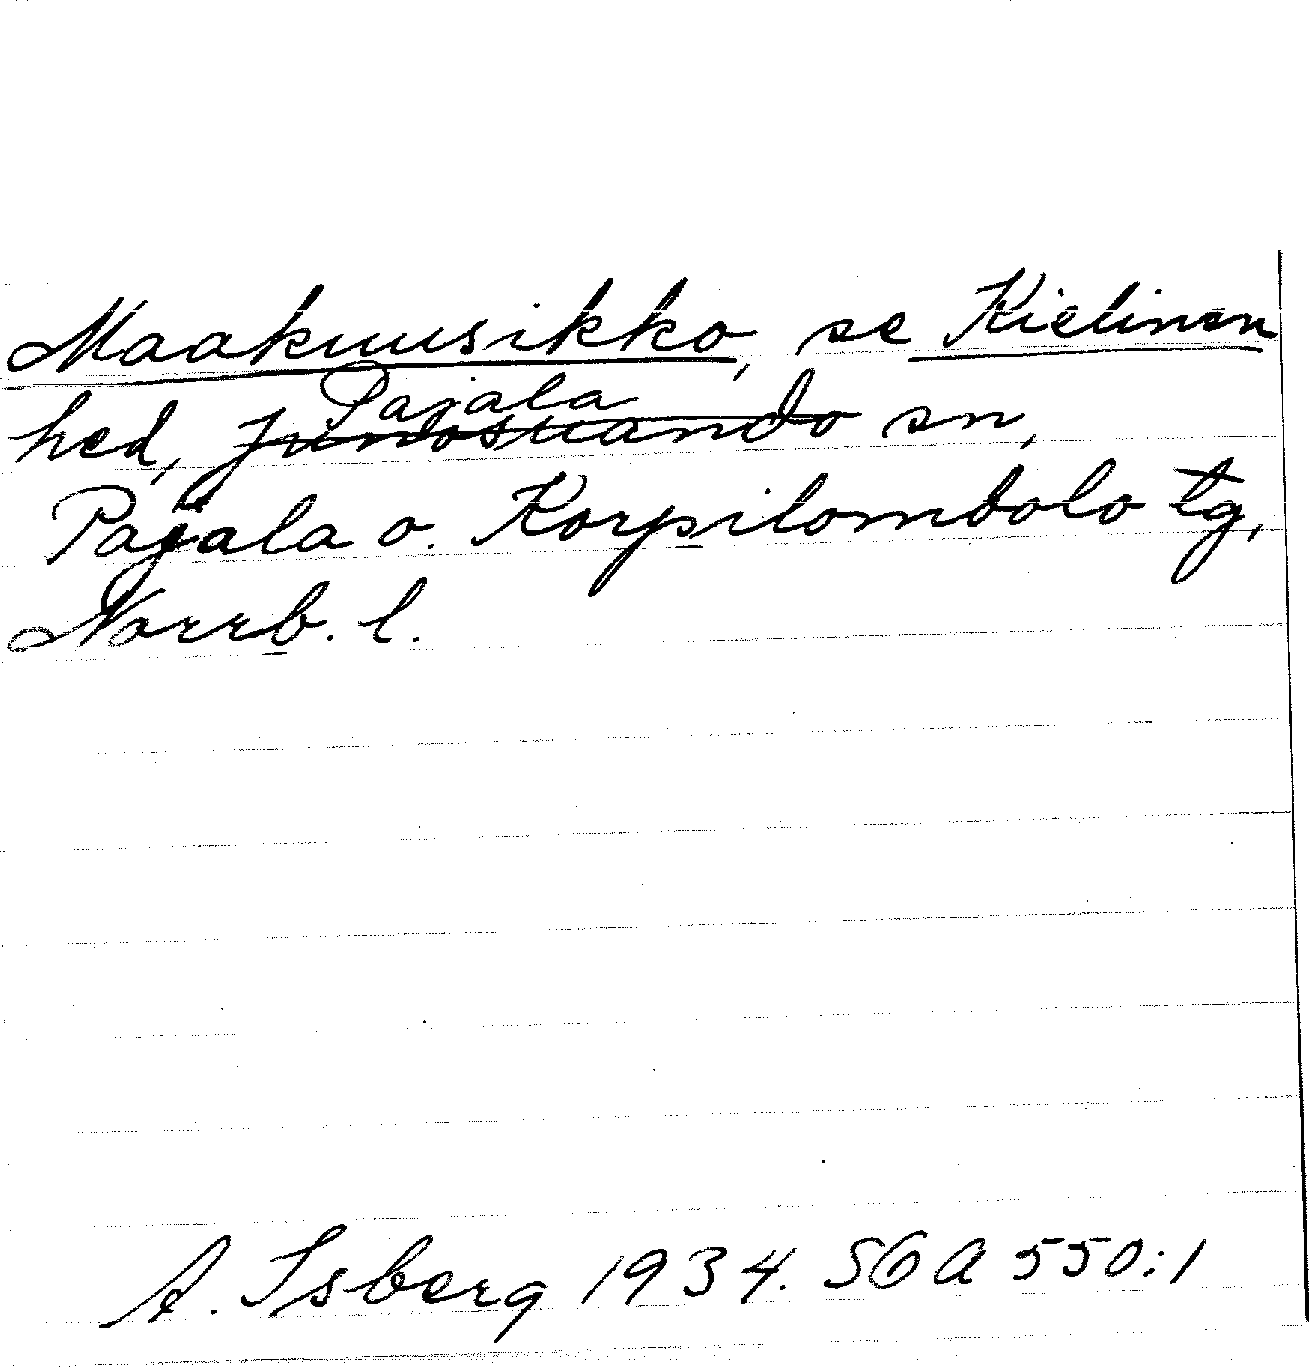 Maakuusikko, se Kielinen
hed, Pajala sn,
Junosuando
Pajala o. Korpilombolo tg,
Norrb. l.
A. Isberg 1934. SOA 550:1